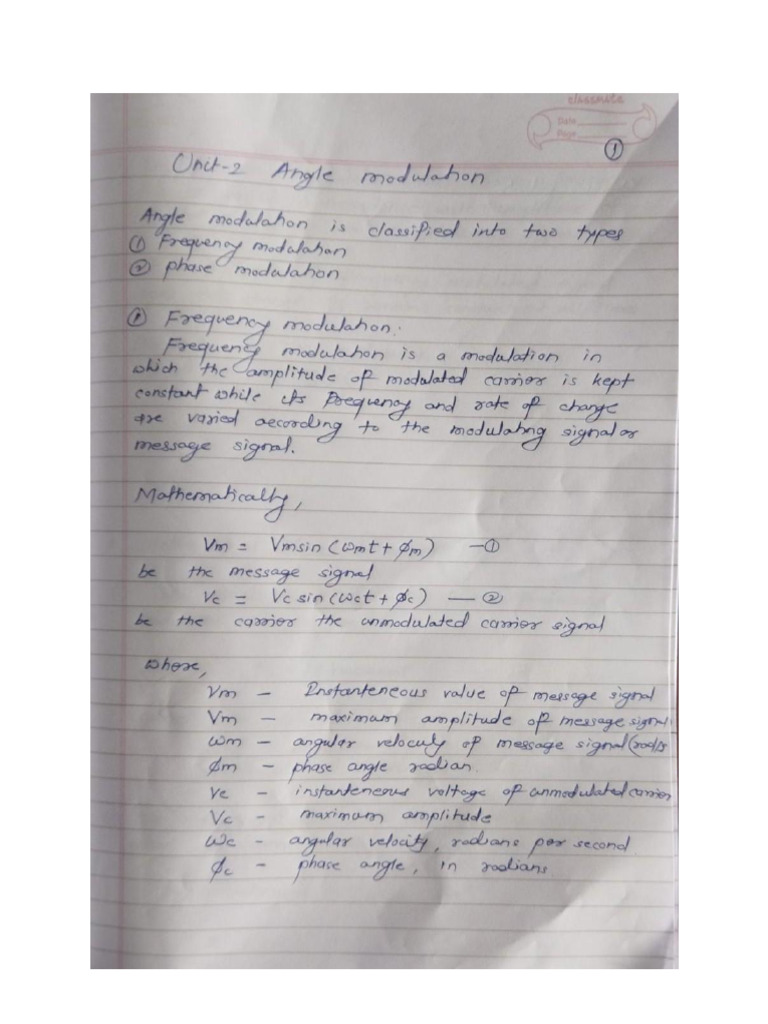 classmate
Date
Page
①
Unit-2 Angle modulation
Angle modulation is classified into two types
① Frequency modulation
② phase modulation
① Frequency modulation.
Frequency modulation is a modulation in
which the amplitude of modulated carrier is kept
constant while its frequency and rate of change
are varied according to the modulating signal or
message signal.
Mathematically,
Vm = Vmsin (ωmt + φm) —①
be the message signal
Vc = Vc sin (ωct + φc) — ②
be the carrier the unmodulated carrier signal
where,
Vm — Instanteneous value of message signal
Vm — maximum amplitude of message signal
ωm — angular velocity of message signal (rad/s
φm — phase angle radian.
vc — instanteneous voltage of unmodulated carrier
Vc — maximum amplitude
ωc — angular velocity, radians per second
φc — phase angle, in radians.